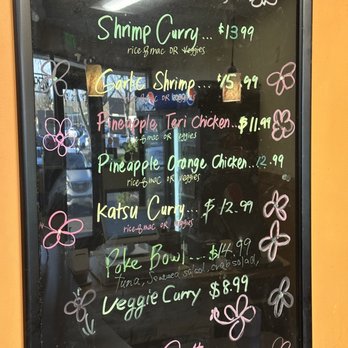 Shrimp Curry... $13.99
rice & mac OR veggies
Garlic Shrimp... $15.99
rice & mac OR veggies
Pineapple Teri Chicken... $11.99
rice & mac OR veggies
Pineapple Orange Chicken... 12.99
rice & mac OR veggies
Katsu Curry... $12.99
rice & mac OR veggies
Poke Bowl... $14.99
tuna, seaweed salad, crab salad,
Veggie Curry $8.99